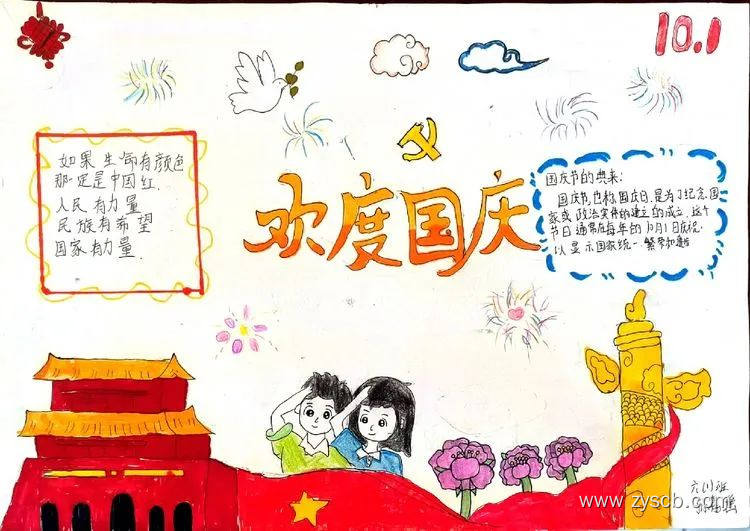 10.1
欢度国庆
如果生命有颜色
那一定是中国红.
人民有力量
民族有希望
国家有力量.
国庆节的典来:
国庆节,也称国庆日,是为了纪念国
家或政治实体的建立的成立.这个
节日通常在每年的10月1日庆祝.
以显示国家统一.繁荣和
六(1)班
www.zyscb.com